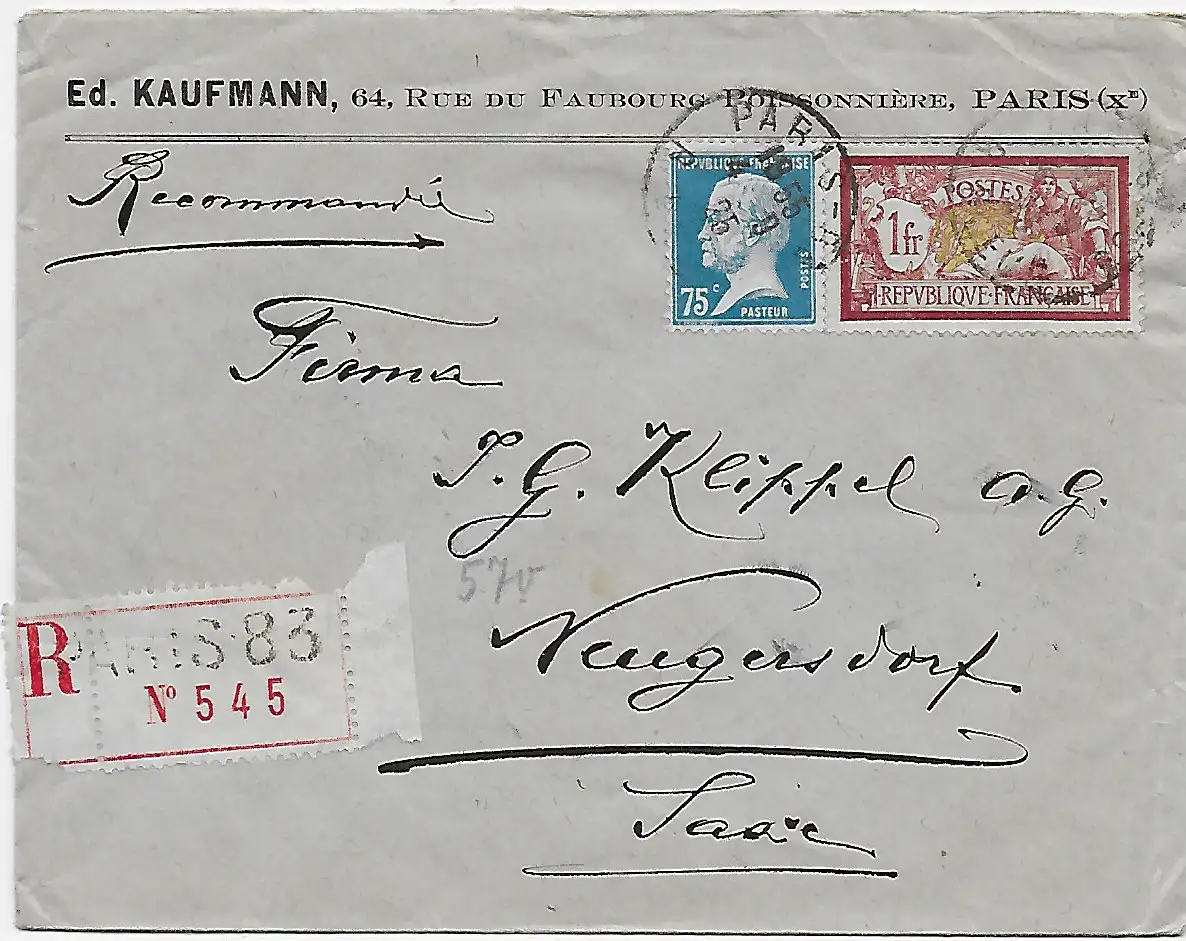 Ed. KAUFMANN, 64, RUE DU FAUBOURG POISSONNIÈRE, PARIS (Xe)
Recommandé
PARIS
25
REPVBLIQVE FRANÇAISE
75c
POSTES
PASTEUR
POSTES
1fr
REPVBLIQVE FRANÇAISE
Firma
J. G. Klippel A.G.
570
Neugersdorf
Saxe
R
PARIS 83
No 545